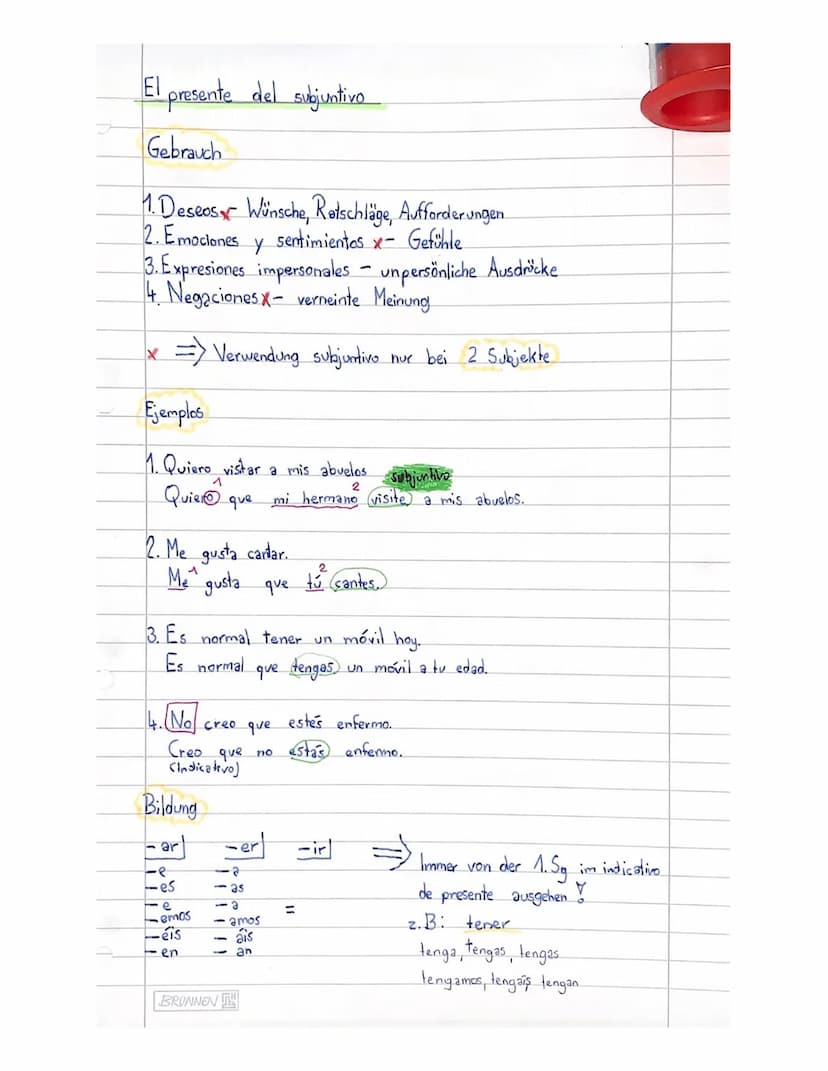 El presente del subjuntivo
Gebrauch
1. Deseos x- Wünsche, Ratschläge, Aufforderungen
2. Emociones y sentimientos x- Gefühle
3. Expresiones impersonales - unpersönliche Ausdrücke
4. Negaciones x- verneinte Meinung
x => Verwendung subjuntivo nur bei 2 Subjekte
Ejemplos
1. Quiero vistar a mis abuelos
subjuntivo
1 2
Quiero que mi hermano visite a mis abuelos.
2. Me gusta cantar.
1 2
Me gusta que tú cantes.
3. Es normal tener un móvil hoy.
Es normal que tengas un móvil a tu edad.
4. No creo que estés enfermo.
Creo que no estás enfermo.
(Indicativo)
Bildung
-ar -er -ir => Immer von der 1.Sg im indicativo
-e -a
-es -as de presente ausgehen!
-e -a =
-emos -amos z.B: tener
-éis - áis tenga, tengas, tengas
-en - an tengamos, tengaís, tengan
BRUNNEN